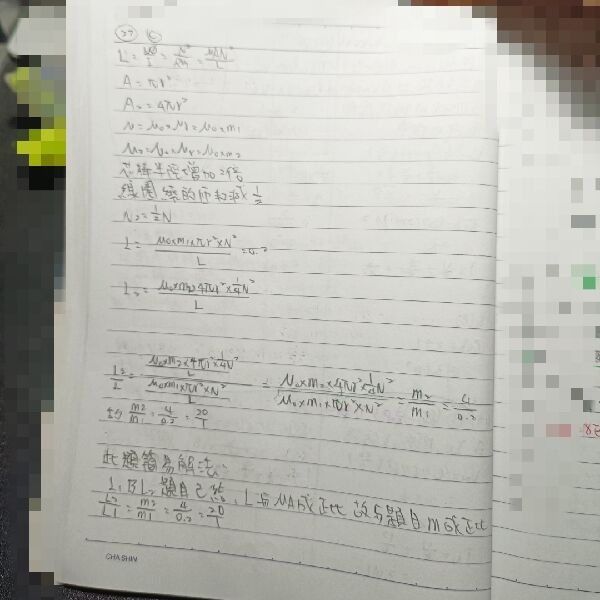 L = Nφ/I = N²/Rm = μAN²/L
A = πr²
A₂ = 4πr²
μ = μ₀×μr = μ₀×m₁
μ₂ = μ₀×μr = μ₀×m₂
芯棒半徑增加2倍
線圈繞的匝數減 1/2
N₂ = 1/2 N
L = μ₀×m₁×πr²×N² / L = 0.2
L₂ = μ₀×m₂×4πr²×1/4N² / L
L₂/L = (μ₀×m₂×4πr²×1/4N² / L) / (μ₀×m₁×πr²×N² / L) = μ₀×m₂×4πr²×1/4N² / μ₀×m₁×πr²×N² = m₂/m₁ = 4/0.2
故 m₂/m₁ = 4/0.2 = 20/1
此題簡易解法:
L₁及L₂題目已給, L與μA成正比 故與題目m成正比
L₂/L1 = m₂/m1 = 4/0.2 = 20/1
CHASHIN